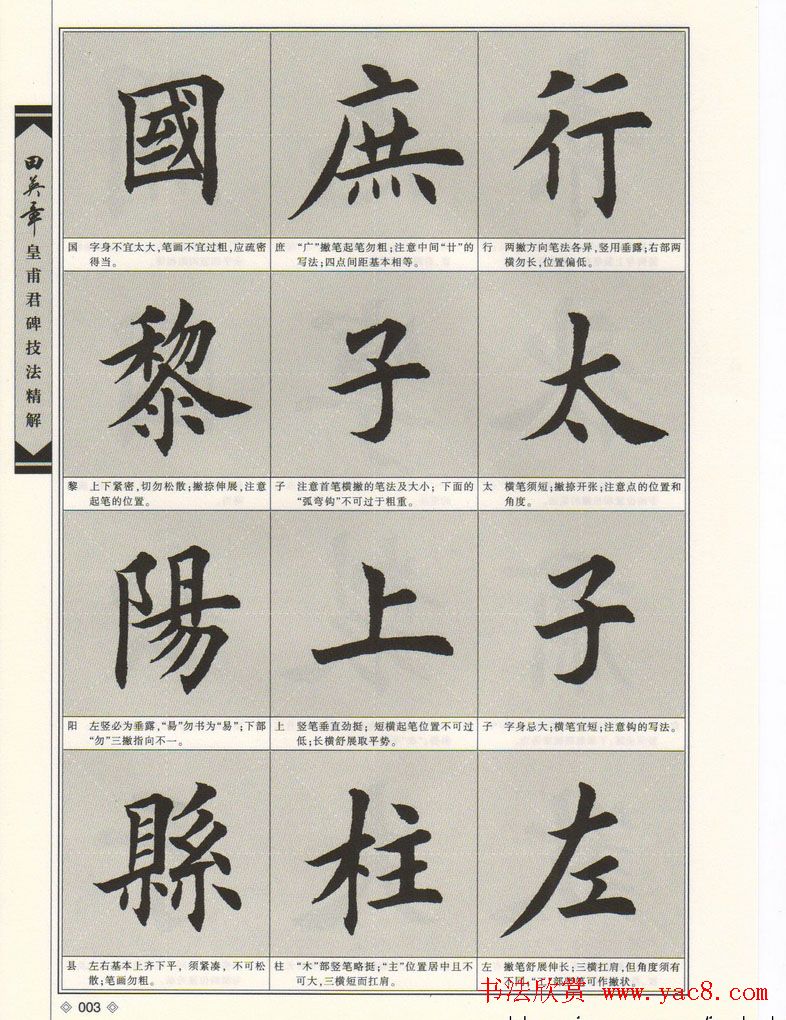 田英章
皇甫君碑技法精解
國
庶
行
国 字身不宜太大,笔画不宜过粗,应疏密
得当。
庶 “广”撇笔起笔勿粗;注意中间“廿”的
写法;四点间距基本相等。
行 两撇方向笔法各异,竖用垂露;右部两
横勿长,位置偏低。
黎
子
太
黎 上下紧密,切勿松散;撇捺伸展,注意
起笔的位置。
子 注意首笔横撇的笔法及大小;下面的
“弧弯钩”不可过于粗重。
太 横笔须短;撇捺开张;注意点的位置和
角度。
陽
上
子
阳 左竖必为垂露,“昜”勿书为“易”;下部
“勿”三撇指向不一。
上 竖笔垂直劲挺;短横起笔位置不可过
低;长横舒展取平势。
子 字身忌大;横笔宜短;注意钩的写法。
縣
柱
左
县 左右基本上齐下平,须紧凑,不可松
散;笔画勿粗。
柱 “木”部竖笔略挺;“主”位置居中且不
可大,三横短而扛肩。
左 撇笔舒展伸长;三横扛肩,但角度须有
不同,“工”部竖笔可作撇状。
书法欣赏 www.yac8.com
003